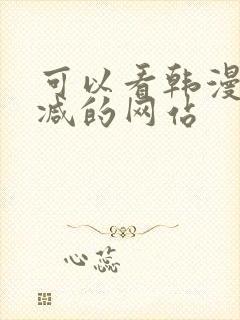 可以看韩漫
减的网佔
心蕊